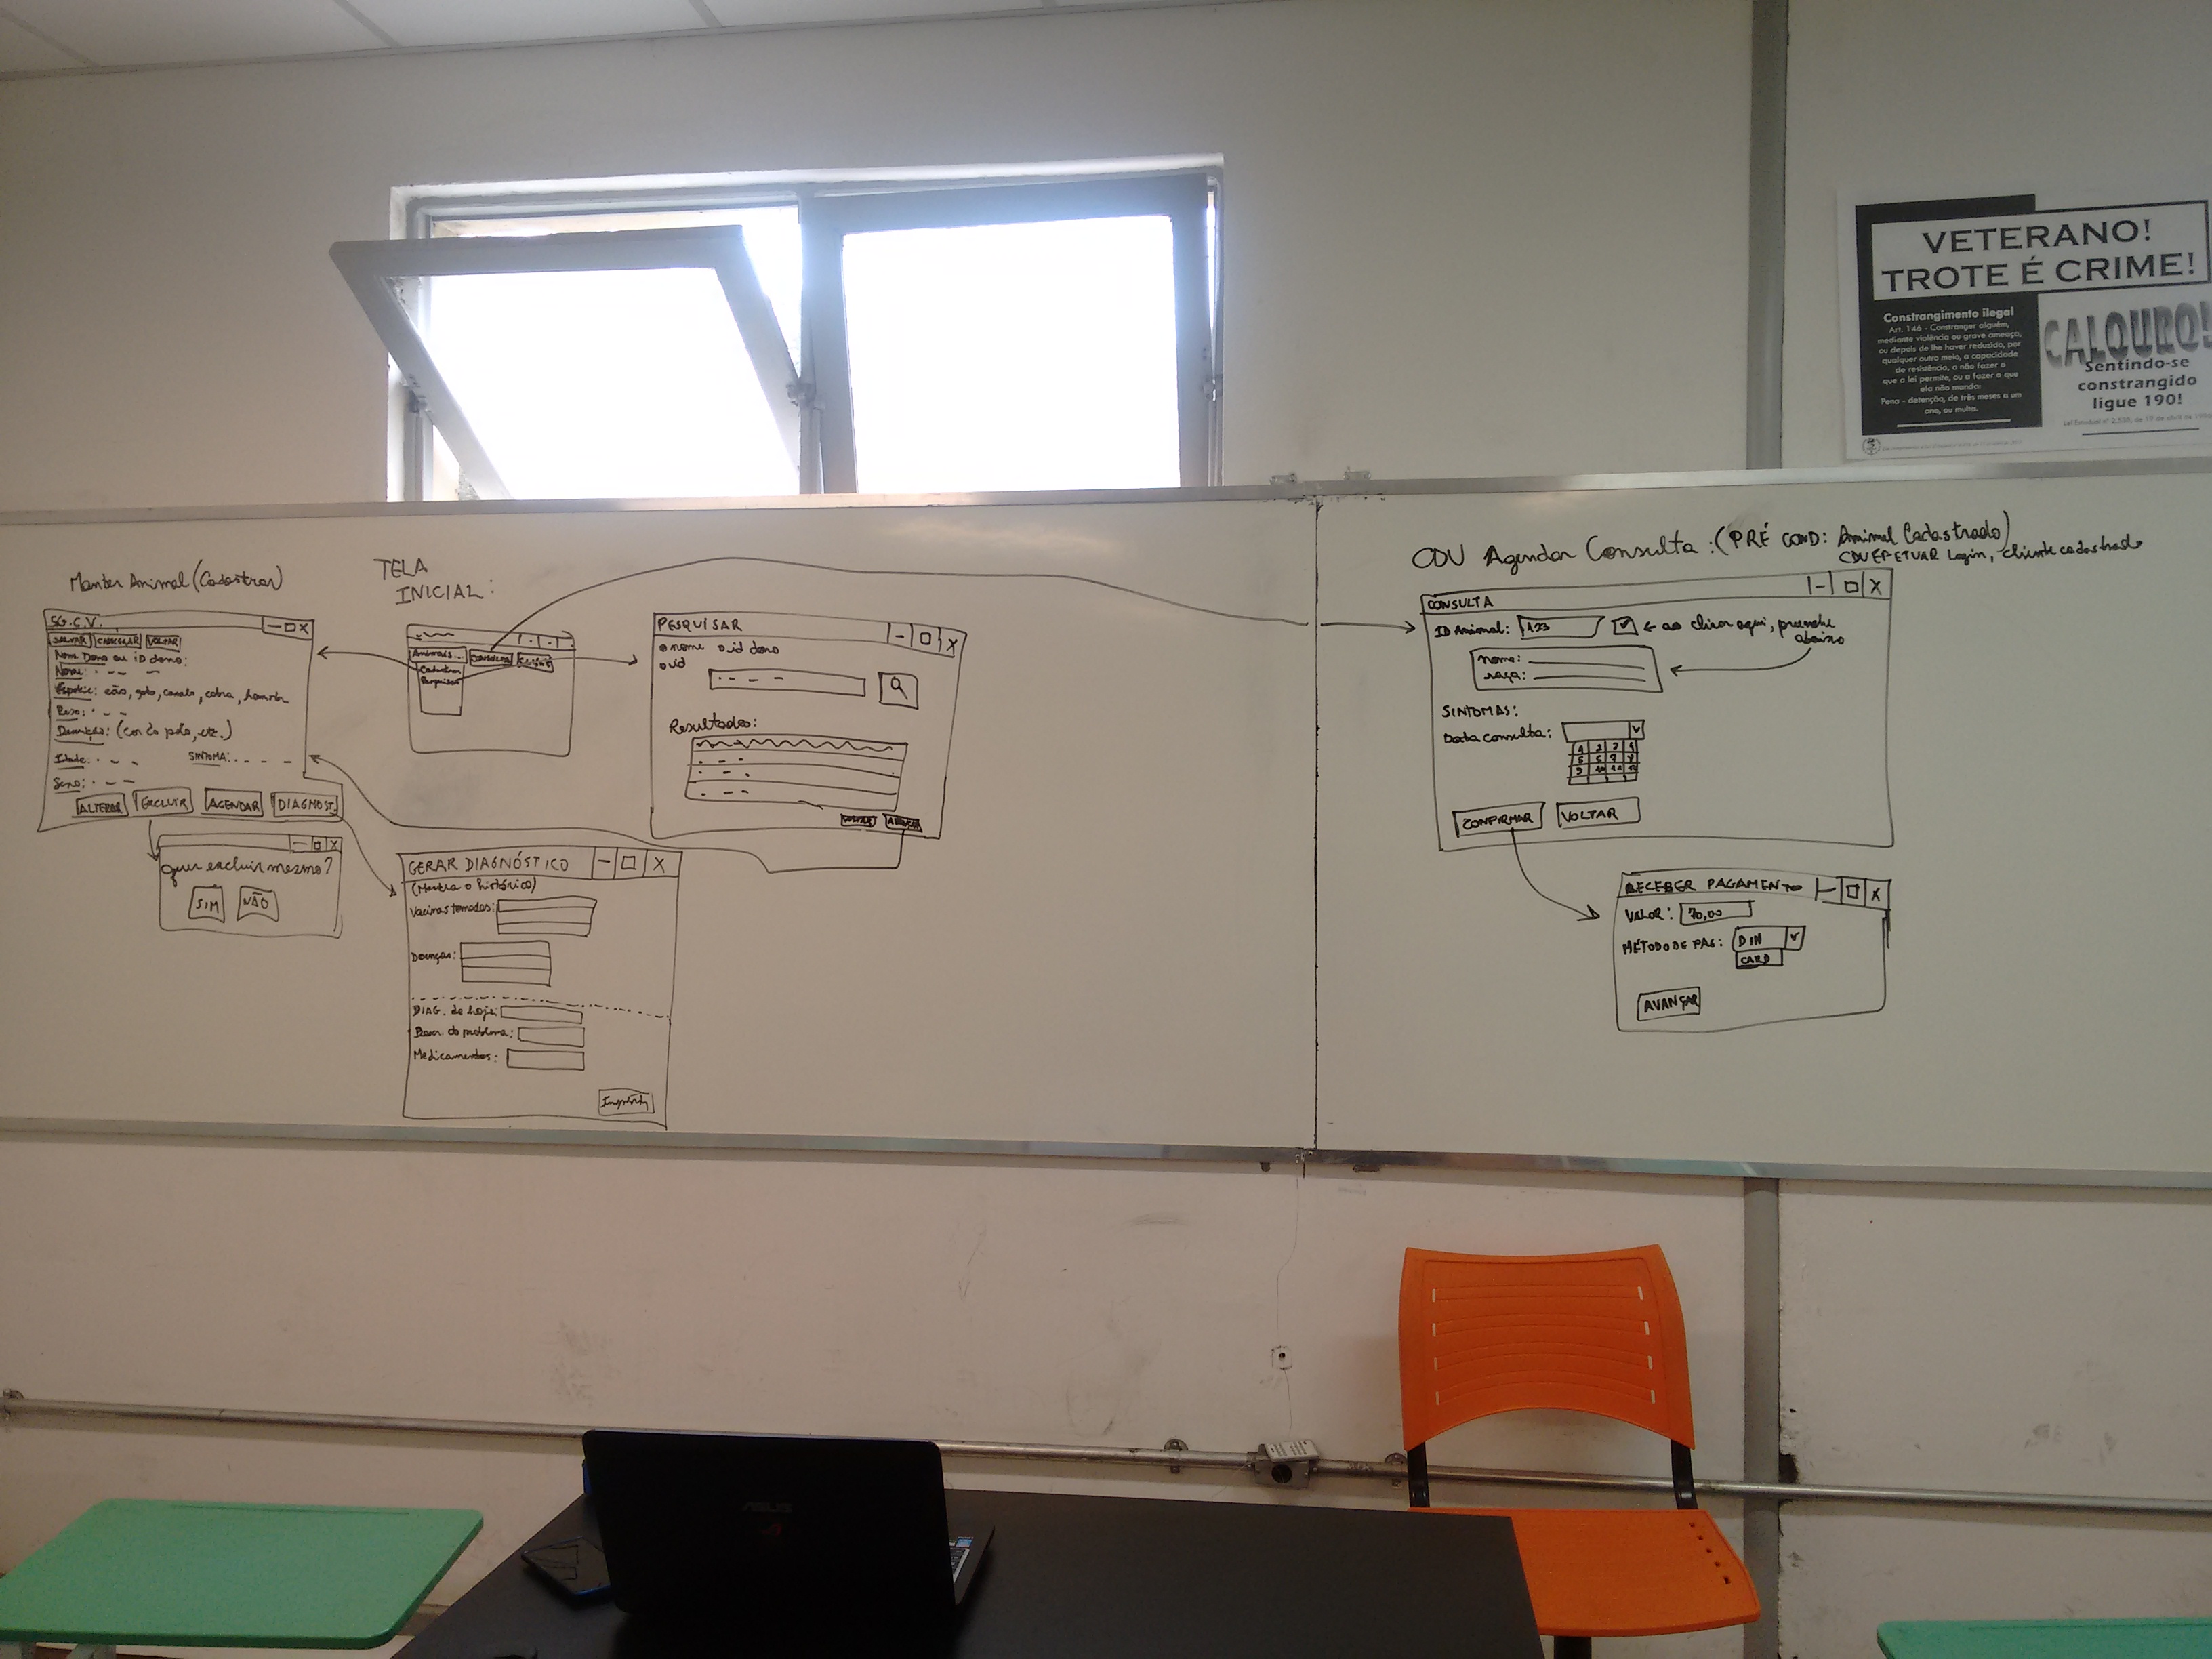 VETERANO!
TROTE É CRIME!
Constrangimento ilegal
Art. 146 - Constranger alguém,
mediante violência ou grave ameaça,
ou depois de lhe haver reduzido, por
qualquer outro meio, a capacidade
de resistência, a não fazer o
que a lei permite, ou a fazer o que
ela não manda:
Pena - detenção, de três meses a um
ano, ou multa.
CALOURO!
Sentindo-se
constrangido
ligue 190!
Manter Animal (Cadastrar)
S.G.C.V.
SALVAR CANCELAR VOLTAR
Nome Dono ou id dono:
Nome:
Espécie: cão, gato, cavalo, cobra, hamster
Peso:
Descrição: (cor do pelo, etc.)
Idade: SINTOMA:
Sexo:
ALTERAR EXCLUIR AGENDAR DIAGNOST.
Quer excluir mesmo?
SIM NÃO
TELA
INICIAL:
Animais...
CONSULTA
Cadastrar
Pesquisar
PESQUISAR
nome id dono
id
Resultados:
VOLTAR AVANÇAR
GERAR DIAGNÓSTICO
(Mostra o histórico)
Vacinas tomadas:
Doenças:
DIAG. de hoje:
Descr. do problema:
Medicamentos:
CDU Agendar Consulta: (PRÉ COND: Animal Cadastrado)
CDU EFETUAR Login, cliente cadastrado
CONSULTA
ID Animal: 123 ← ao clicar aqui, preenche
abaixo
nome:
raça:
SINTOMAS:
Data consulta:
1 2 3 4
5 6 7 8
9 10 11 12
CONFIRMAR VOLTAR
RECEBER PAGAMENTO
VALOR: 70,00
MÉTODO DE PAG: DIN
CARD
AVANÇAR
ASUS